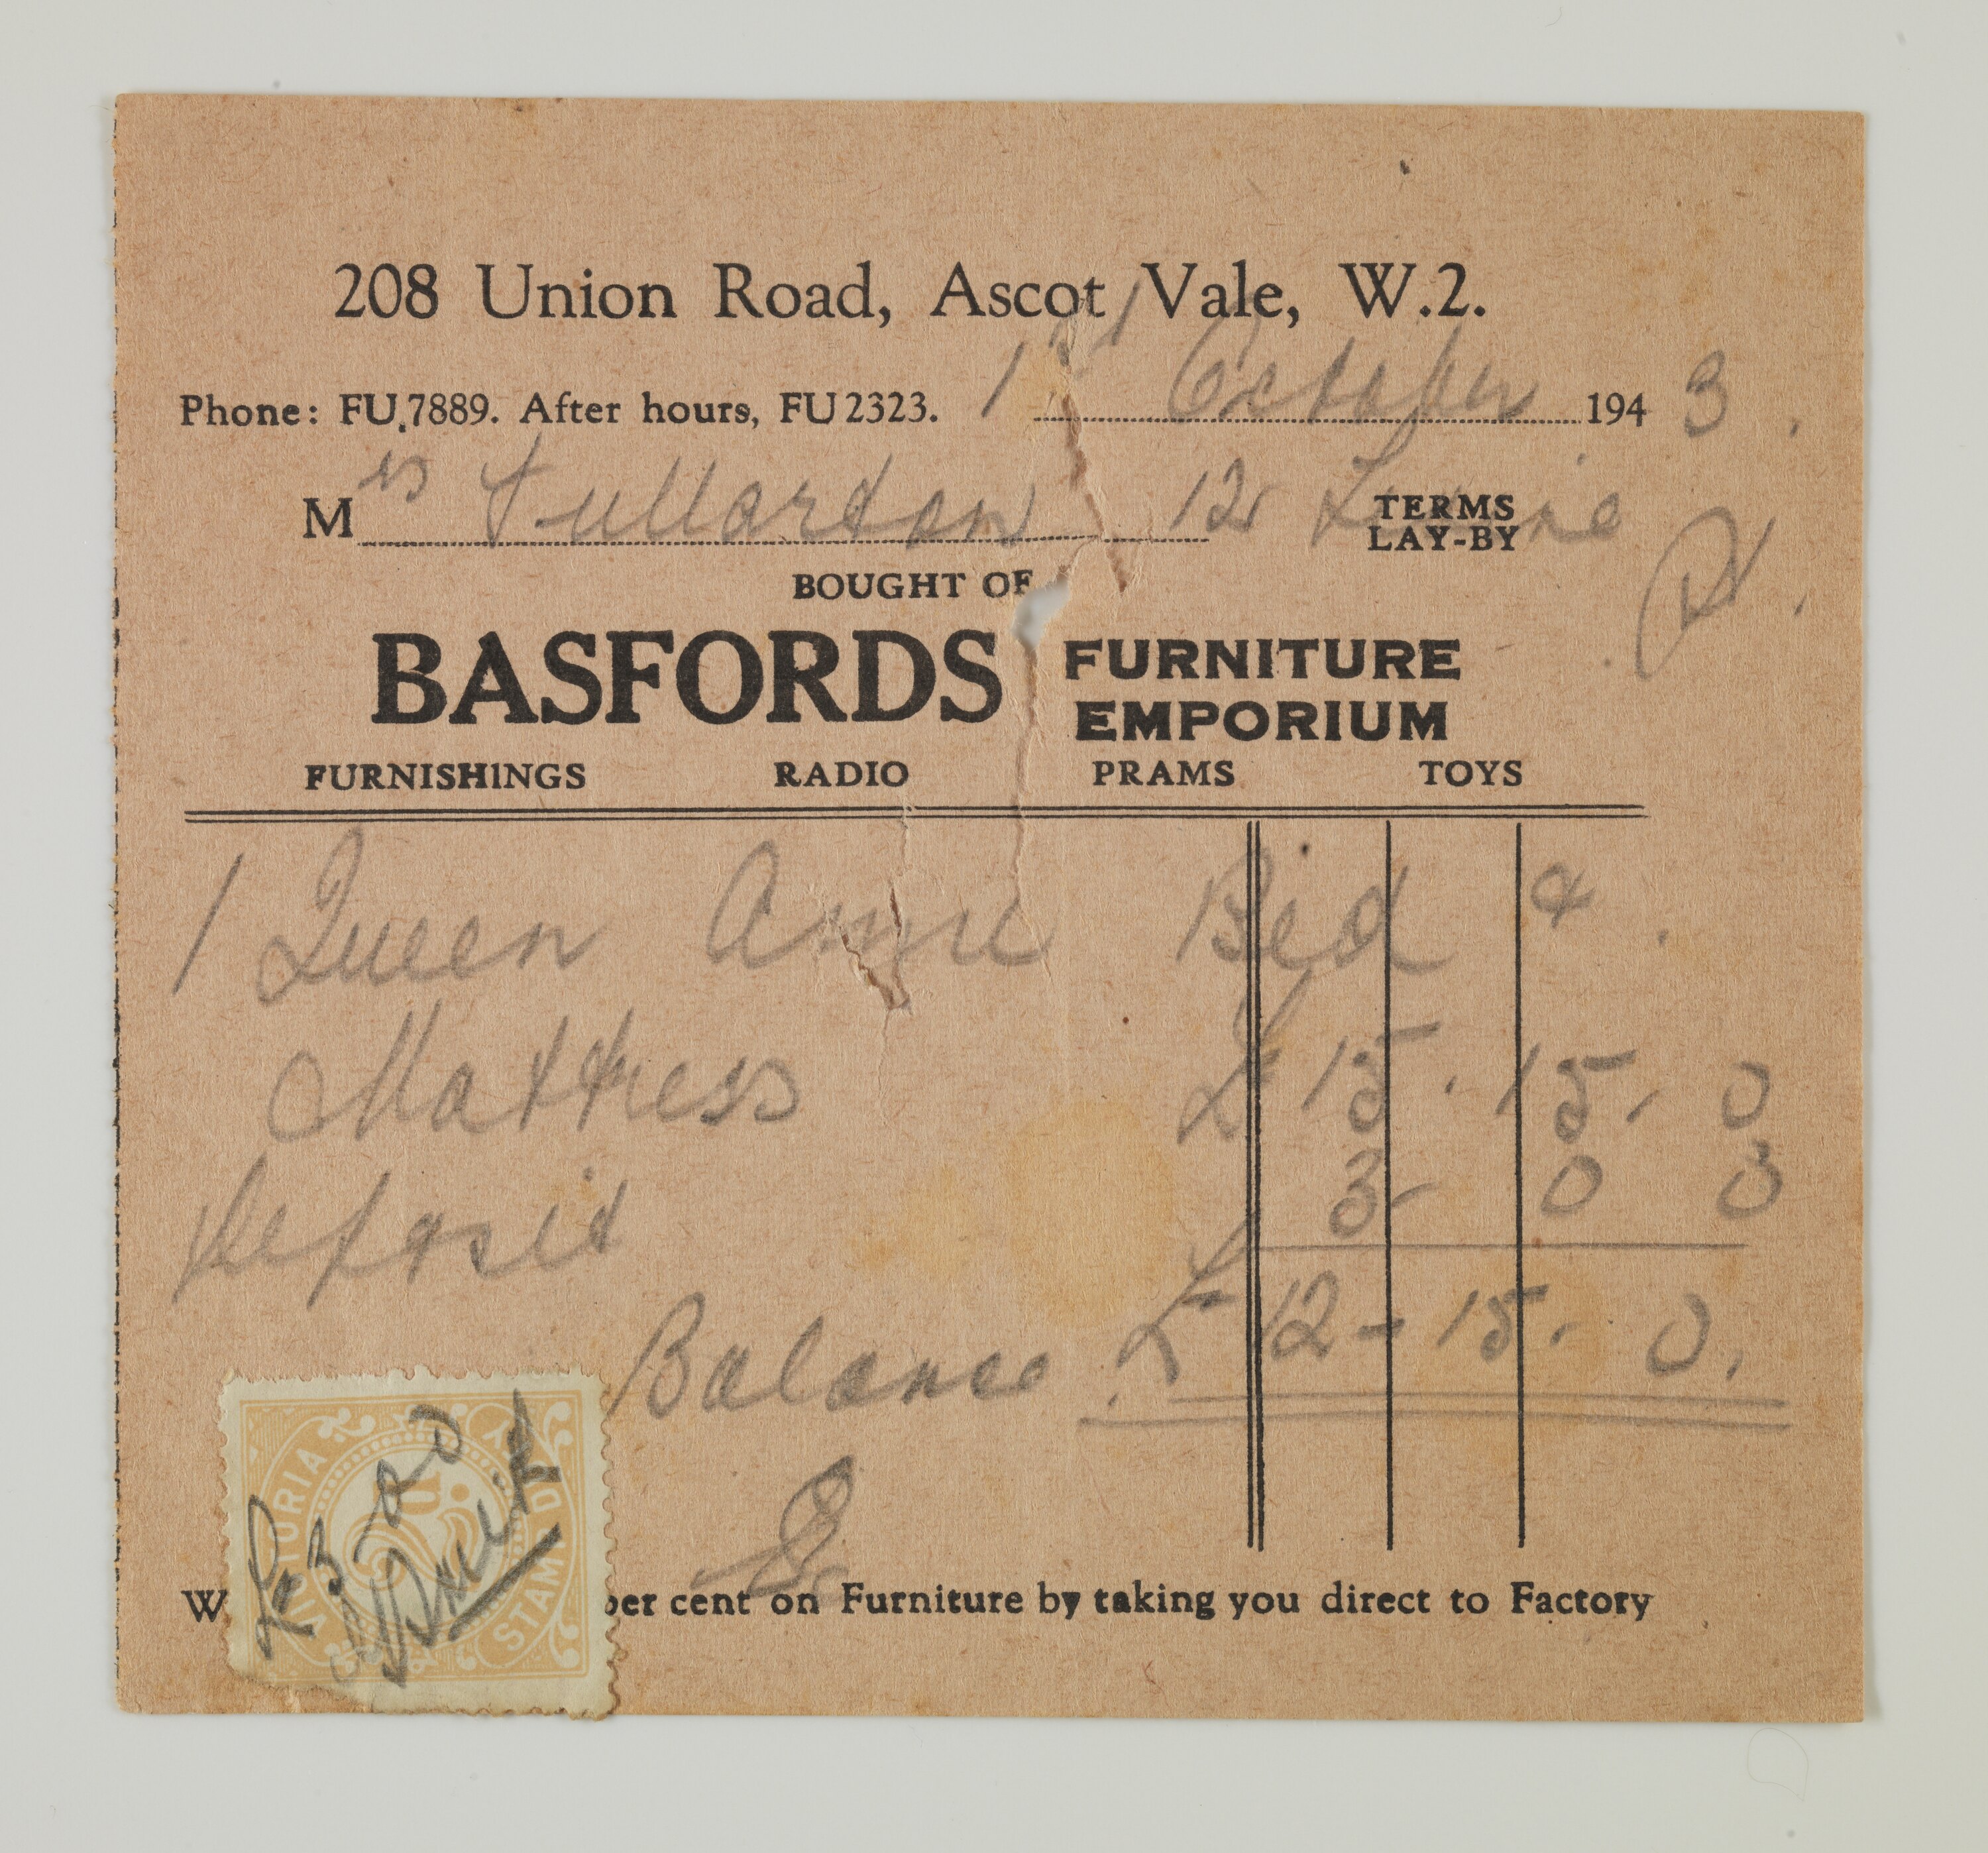 208 Union Road, Ascot Vale, W.2.
Phone: FU.7889. After hours, FU2323. 1st October 1943.
Mrs Fullarton 12
TERMS
LAY-BY
BOUGHT OF
BASFORDS FURNITURE EMPORIUM
FURNISHINGS RADIO PRAMS TOYS
1 Queen Anne Bed &
Mattress £ 15. 15. 0
Deposit 3 - 0 0
Balance £ 12 - 15. 0.
VICTORIA STAMP DUTY
2D.
£3 00
W per cent on Furniture by taking you direct to Factory